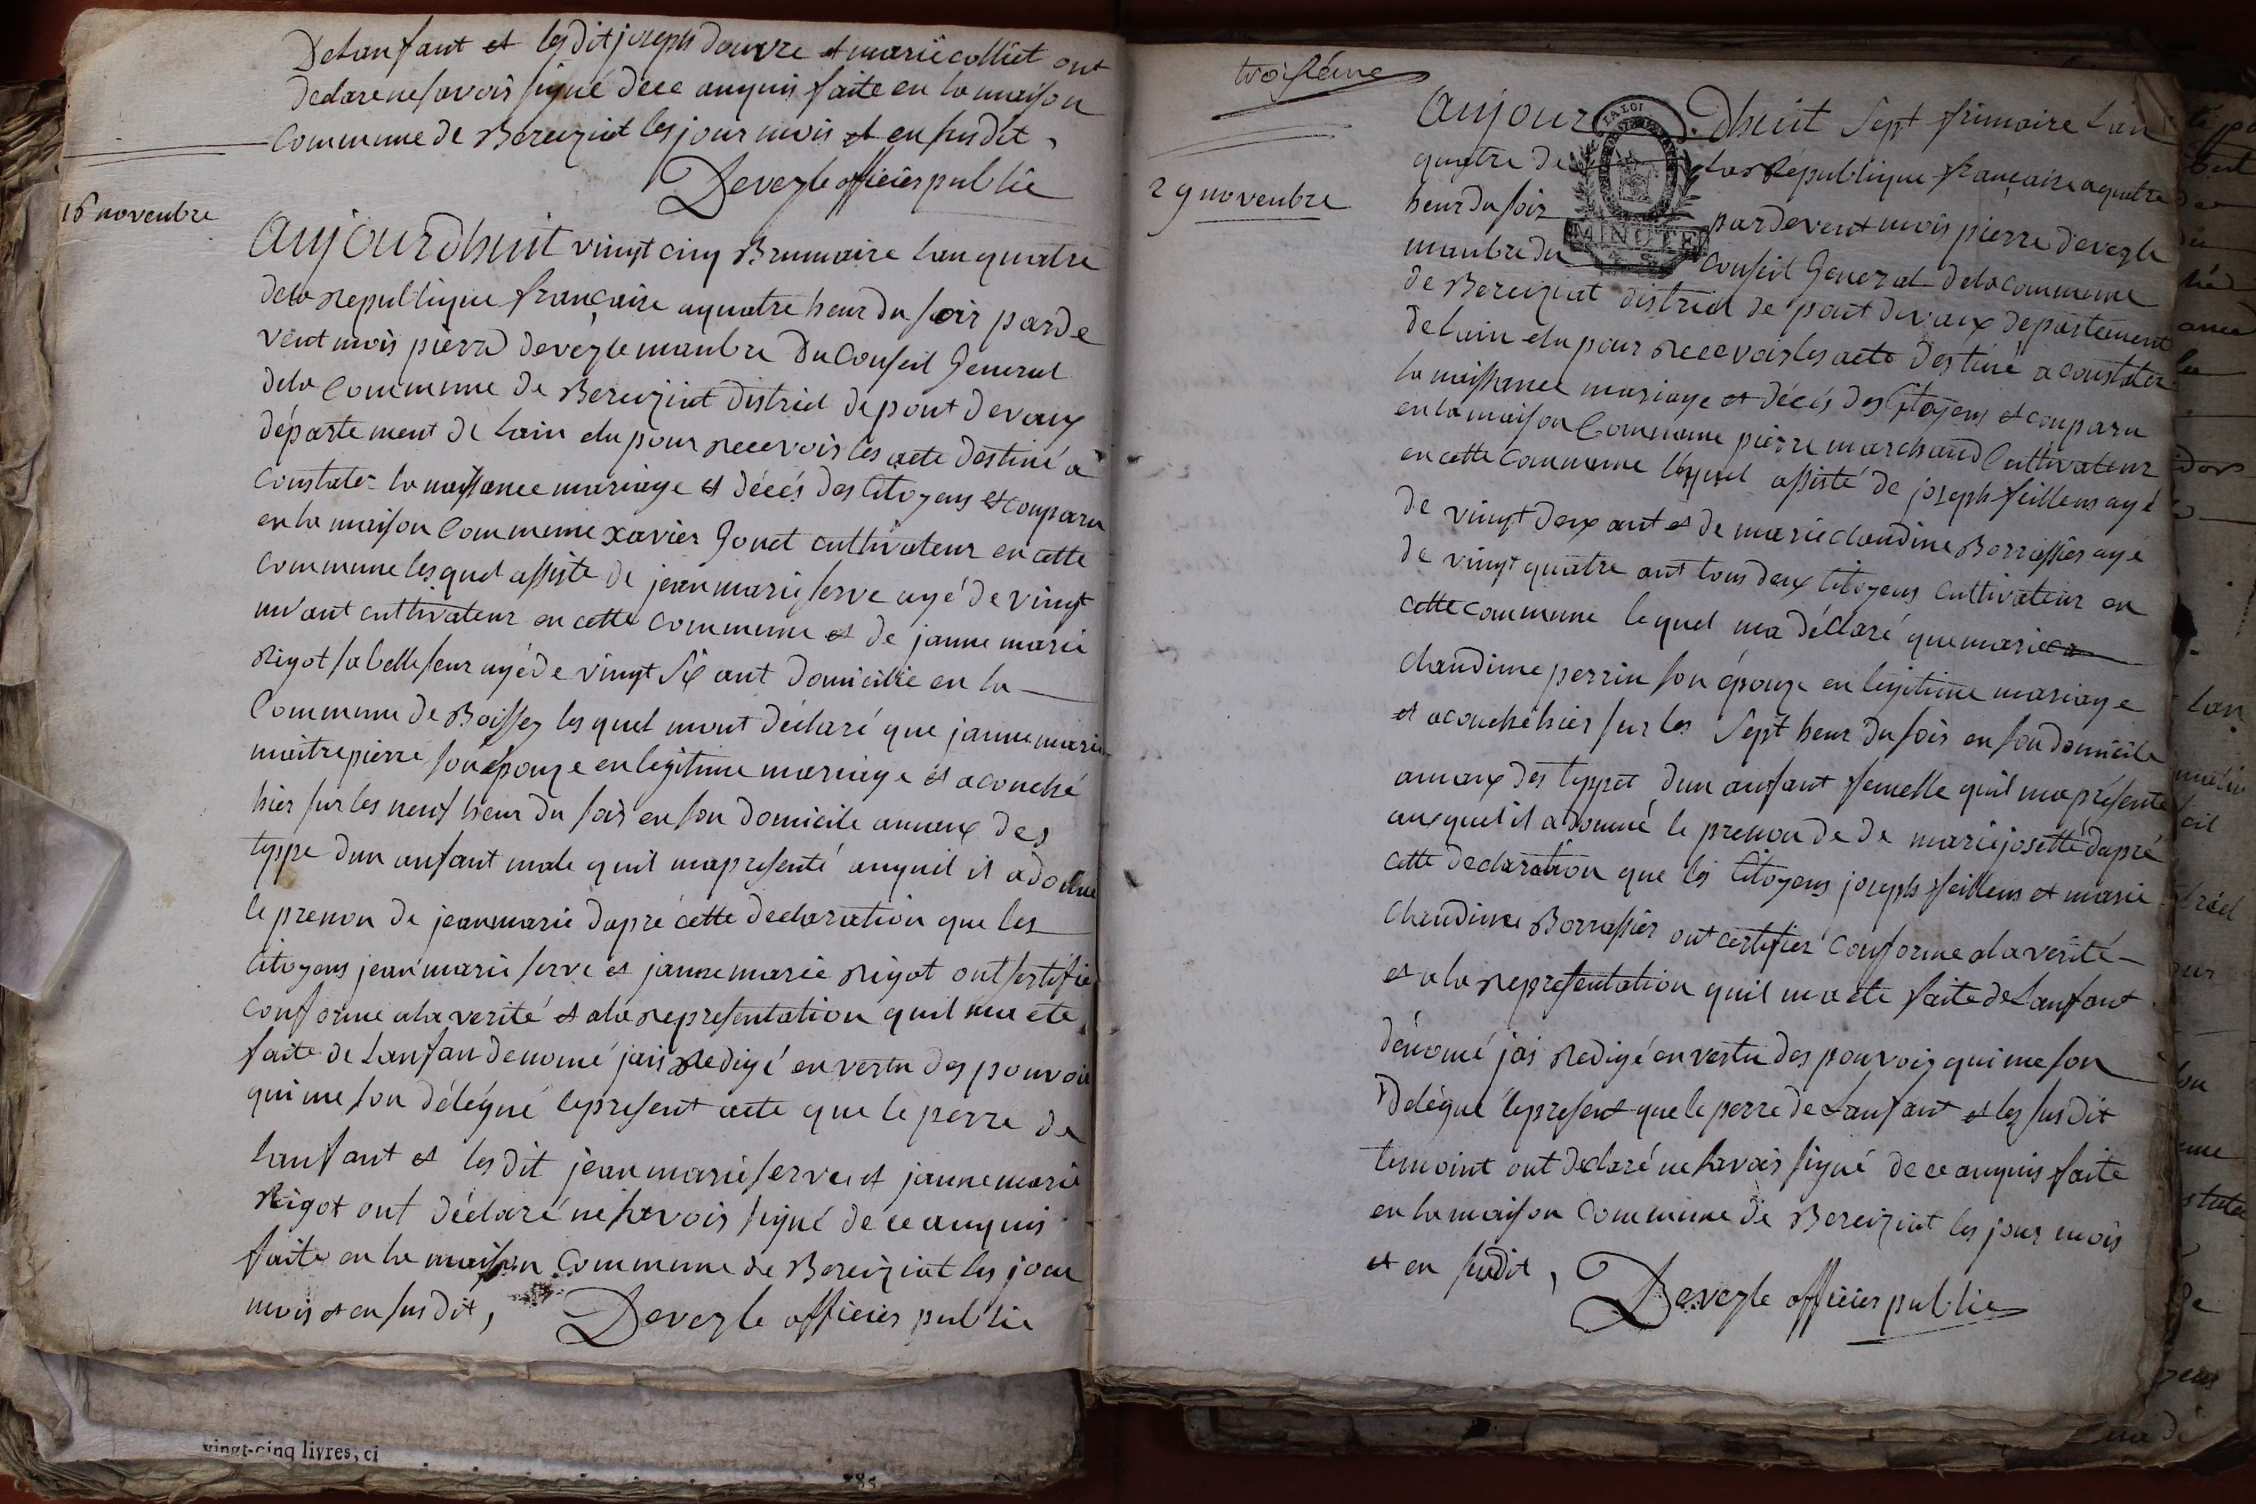 Delanfant et lesdit joseph douvre et marie colliet ont
declare ne savoir signé dece anquis faite en la maison
commune de Bereiziat les jour mois et en susdit,
Deveyle officier public
16 novenbre
Aujourdhuit vingt cinq Brumaire lan quatre
dela Republique française aquatre heur du soir parde
vent mois pierre deveyle manbre Du Conseil General
dela Commune de Bereiziat district de pont devaux
département de lain elu pour recevoir les acte destiné a
Constater la naissance mariage et décés des Citoyens et conparu
en la maison Commune xavier Gonet cultivateur en cette
commune lesquel assiste de jean marie serve agé de vingt
nv̄ ant cultivateur en cette commune et de janne marie
Rigot sa belle seur agé de vingt six ant domicilie en la
Commune de Boissey les quel mont déclaré que janne marie
maitrepierre son épouze en legitime mariage et a couché
hier sur les neuf heur du soir en son domicile annaux des
typpe dun anfant male quil mapresenté auquel il adonne
le prenon de jeanmarie dapré cette declaration que les
Citoyens jean marie serve et janne marie Rigot ont sertifié
conforme ala verité et ala representation quil ma ete
faite de Lanfan denomé jais Redigé en vertu des pouvoir
qui me son délégué lepresent acte que le perre de
lanfant et lesdit jean marie serve et janne marie
Rigot ont déclaré ne savoir signé de ce anquis
faite en la maison commune de Bereiziat les jour
mois et en susdit,
Deveyle officier public
vingt-cinq livres, ci
troisiéme
29 novenbre
LA LOI
MINUTE
Aujour Dhuit sept frimaire Lan
quatre de Las Republique française aquatre
heur du soir pardevent mois pierre deveyle
manbre du Conseil General dela commune
de Bereiziat district de pont devaux departement
de lain elu pour recevoir les acte destiné a constater
la naissance mariage et décés des Citoyens et conparu
en la maison Commune pierre marchand Cultivateur
en cette commune lequel assisté de joseph feillens agé
de vingt deux ant et de marie claudine Borrassier agé
de vingt quatre ant tous deux citoyens cultivateur en
cette commune le quel ma déclaré que marie
claudinne perrin son épouze en legitime mariage
et acouché hier sur les sept heur du soir en son domicile
annaux des typpet dun anfant femelle quil mapresenté
auxquel il a donné le prenon de de marie josette dapré
cette declaration que les Citoyens joseph feillens et marie
claudine Borrassier ont certifier conforme ala verité
et ala Representation quil ma ete faite de Lanfant
dénomé jais Redigé en vertu des pouvoir qui me son
Délégué lepresent que le perre de Lanfant et les susdit
temoint ont declaré ne savoir signé de ce anquis faite
en la maison commune de Bereiziat les jour mois
et en sudit,
Deveyle officier public